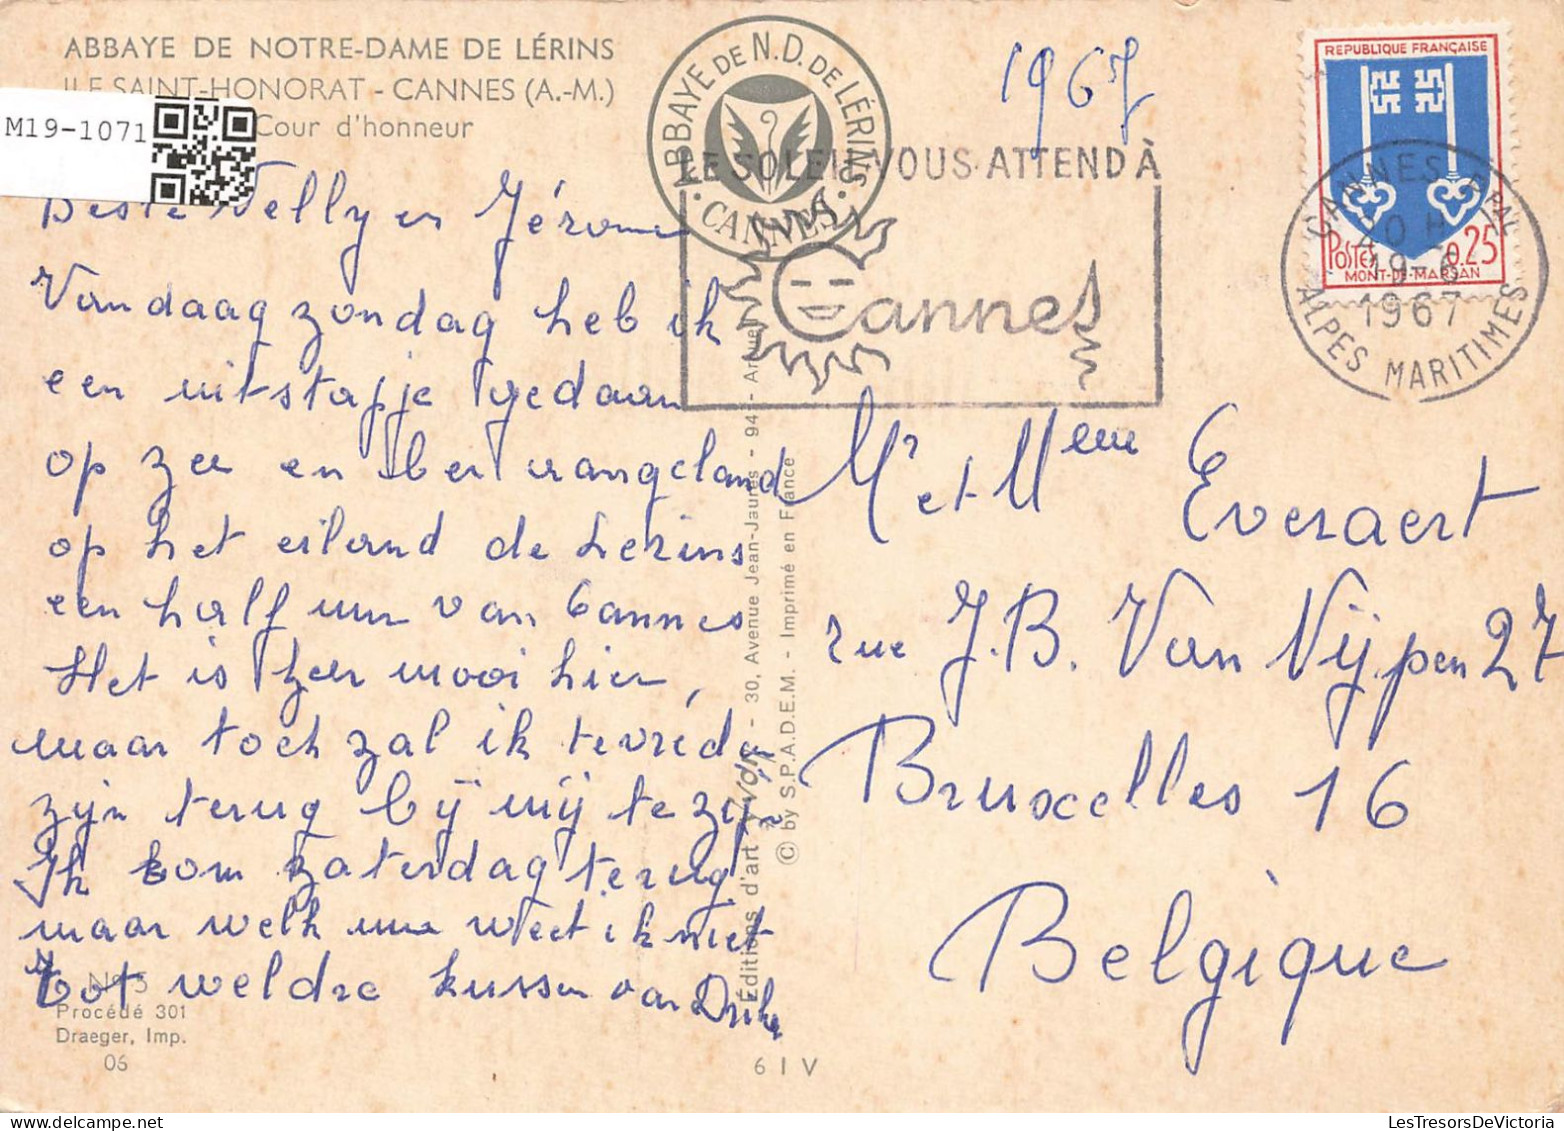 ABBAYE DE NOTRE-DAME DE LÉRINS
ILE SAINT-HONORAT - CANNES (A.-M.)
Cour d'honneur
M19-1071
ABBAYE DE N.D. DE LÉRINS
· CANNES ·
1967
LE SOLEIL VOUS ATTEND À
Cannes
REPUBLIQUE FRANÇAISE
POSTES 0.25
MONT-DE-MARSAN
CANNES
20 H
19-6
1967
ALPES MARITIMES
Beste Nelly en Jérome
Vandaag zondag heb ik
een uitstapje gedaan
op zee en ben aangeland
op het eiland de Lerins
een half uur van Cannes
Het is zeer mooi hier,
maar toch zal ik tevreden
zijn terug bij mij te zijn
Ik kom zaterdag terug
maar welk uur weet ik niet
Tot weldra kussen van
Mr et Meme Everaert
rue J.B. Van Nijpen 27
Bruxelles 16
Belgique
Éditions d'art YVON - 30, Avenue Jean-Jaurès - 94 - Arcueil
© by S.P.A.D.E.M. - Imprimé en France
No 5
Procédé 301
Draeger, Imp.
06
6 I V
LesTresorsDeVictoria